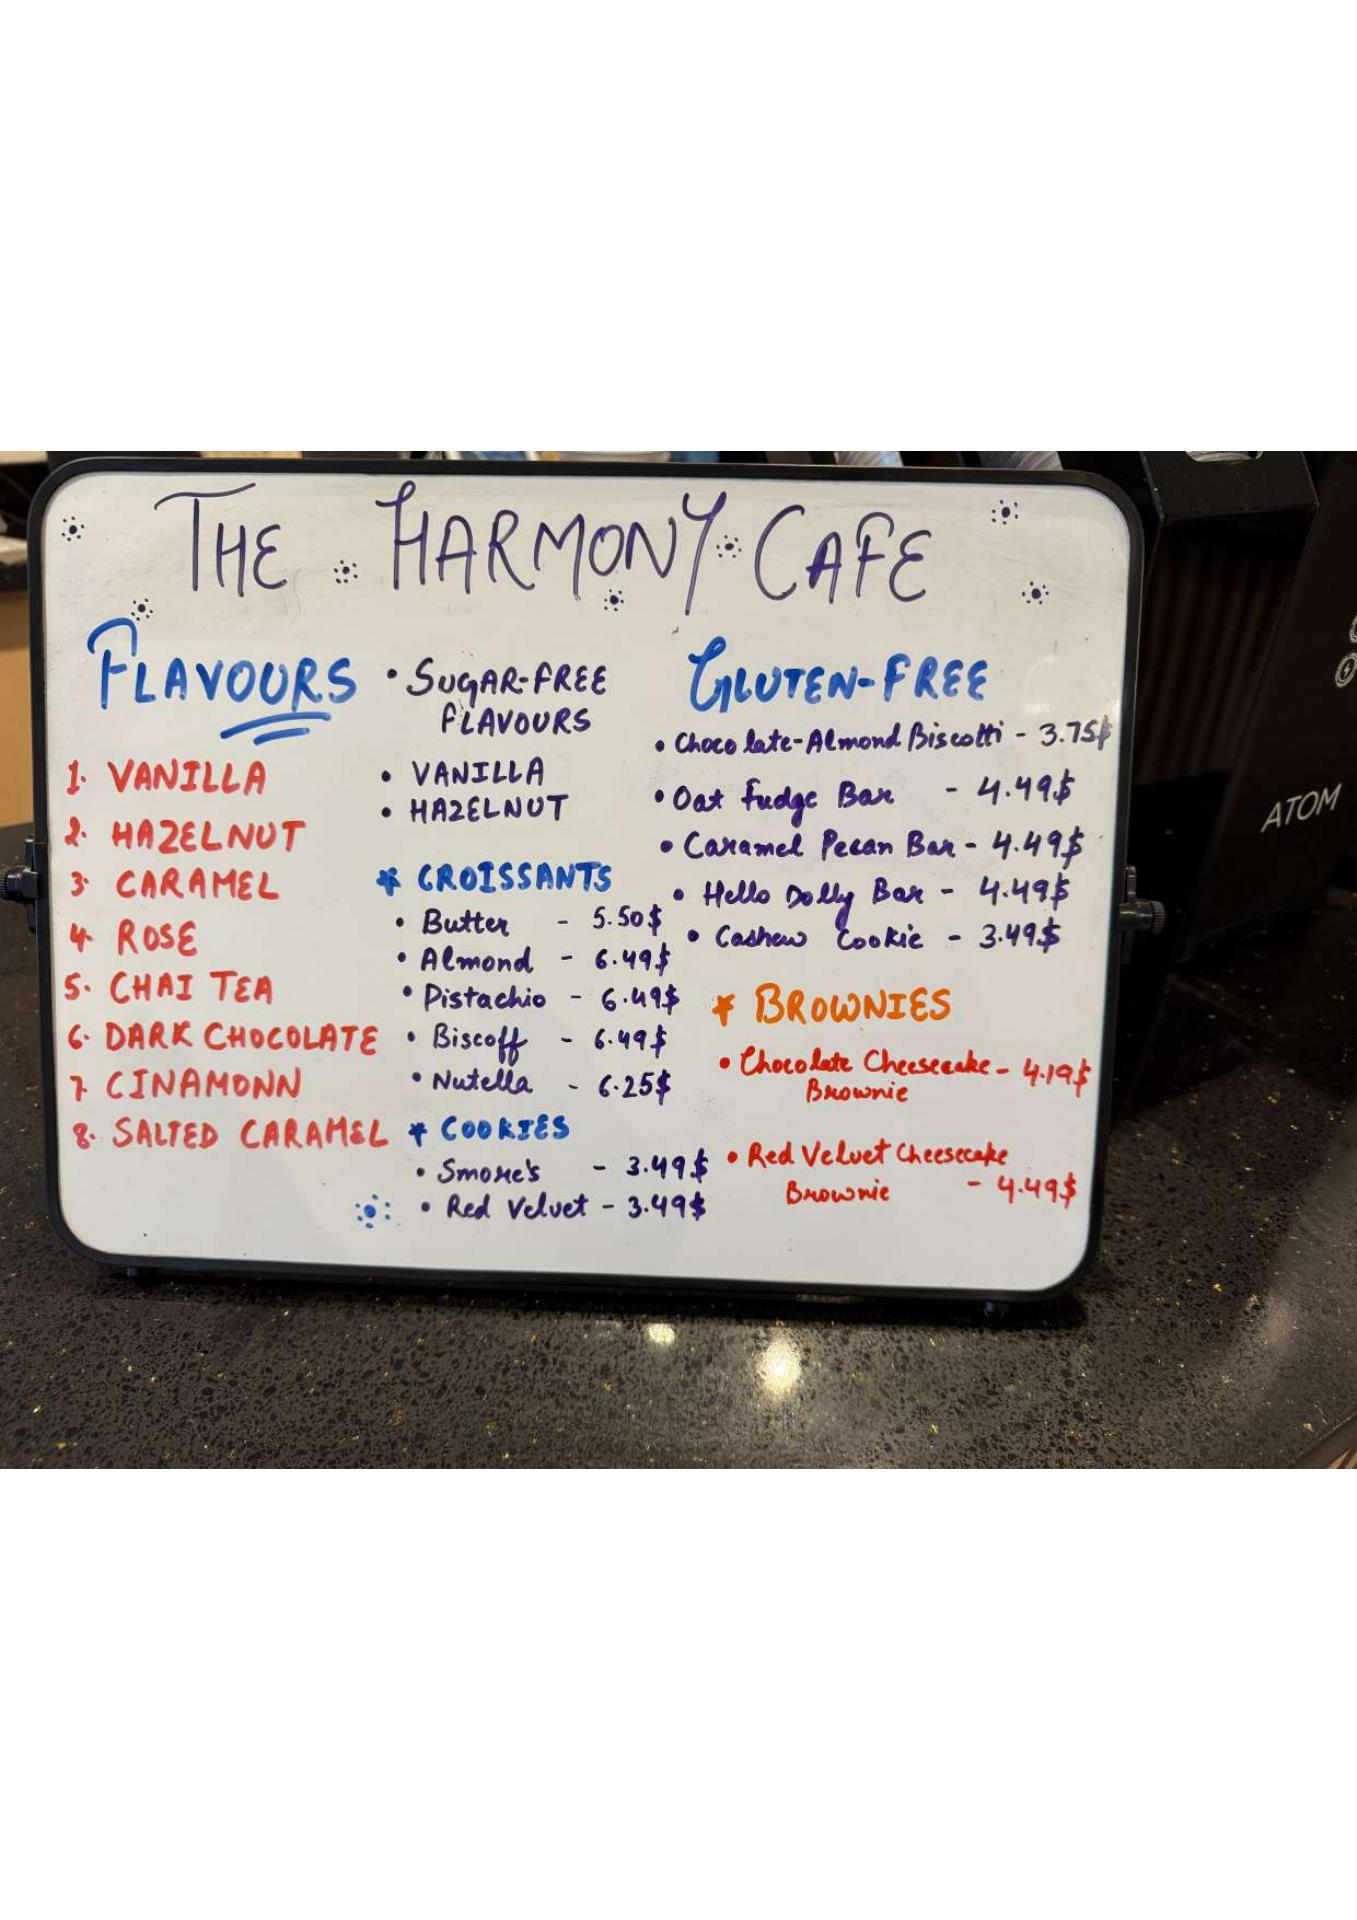 THE HARMONY CAFE
FLAVOURS
1. VANILLA
2. HAZELNUT
3. CARAMEL
4. ROSE
5. CHAI TEA
6. DARK CHOCOLATE
7. CINAMONN
8. SALTED CARAMEL
• SUGAR-FREE
FLAVOURS
• VANILLA
• HAZELNUT
* CROISSANTS
• Butter - 5.50$
• Almond - 6.49$
• Pistachio - 6.49$
• Biscoff - 6.49$
• Nutella - 6.25$
* COOKIES
• Smore's - 3.49$
• Red Velvet - 3.49$
GLUTEN-FREE
• Chocolate-Almond Biscotti - 3.75$
• Oat Fudge Bar - 4.49$
• Caramel Pecan Bar - 4.49$
• Hello Dolly Bar - 4.49$
• Cashew Cookie - 3.49$
* BROWNIES
• Chocolate Cheesecake - 4.19$
Brownie
• Red Velvet Cheesecake
Brownie - 4.49$
ATOM